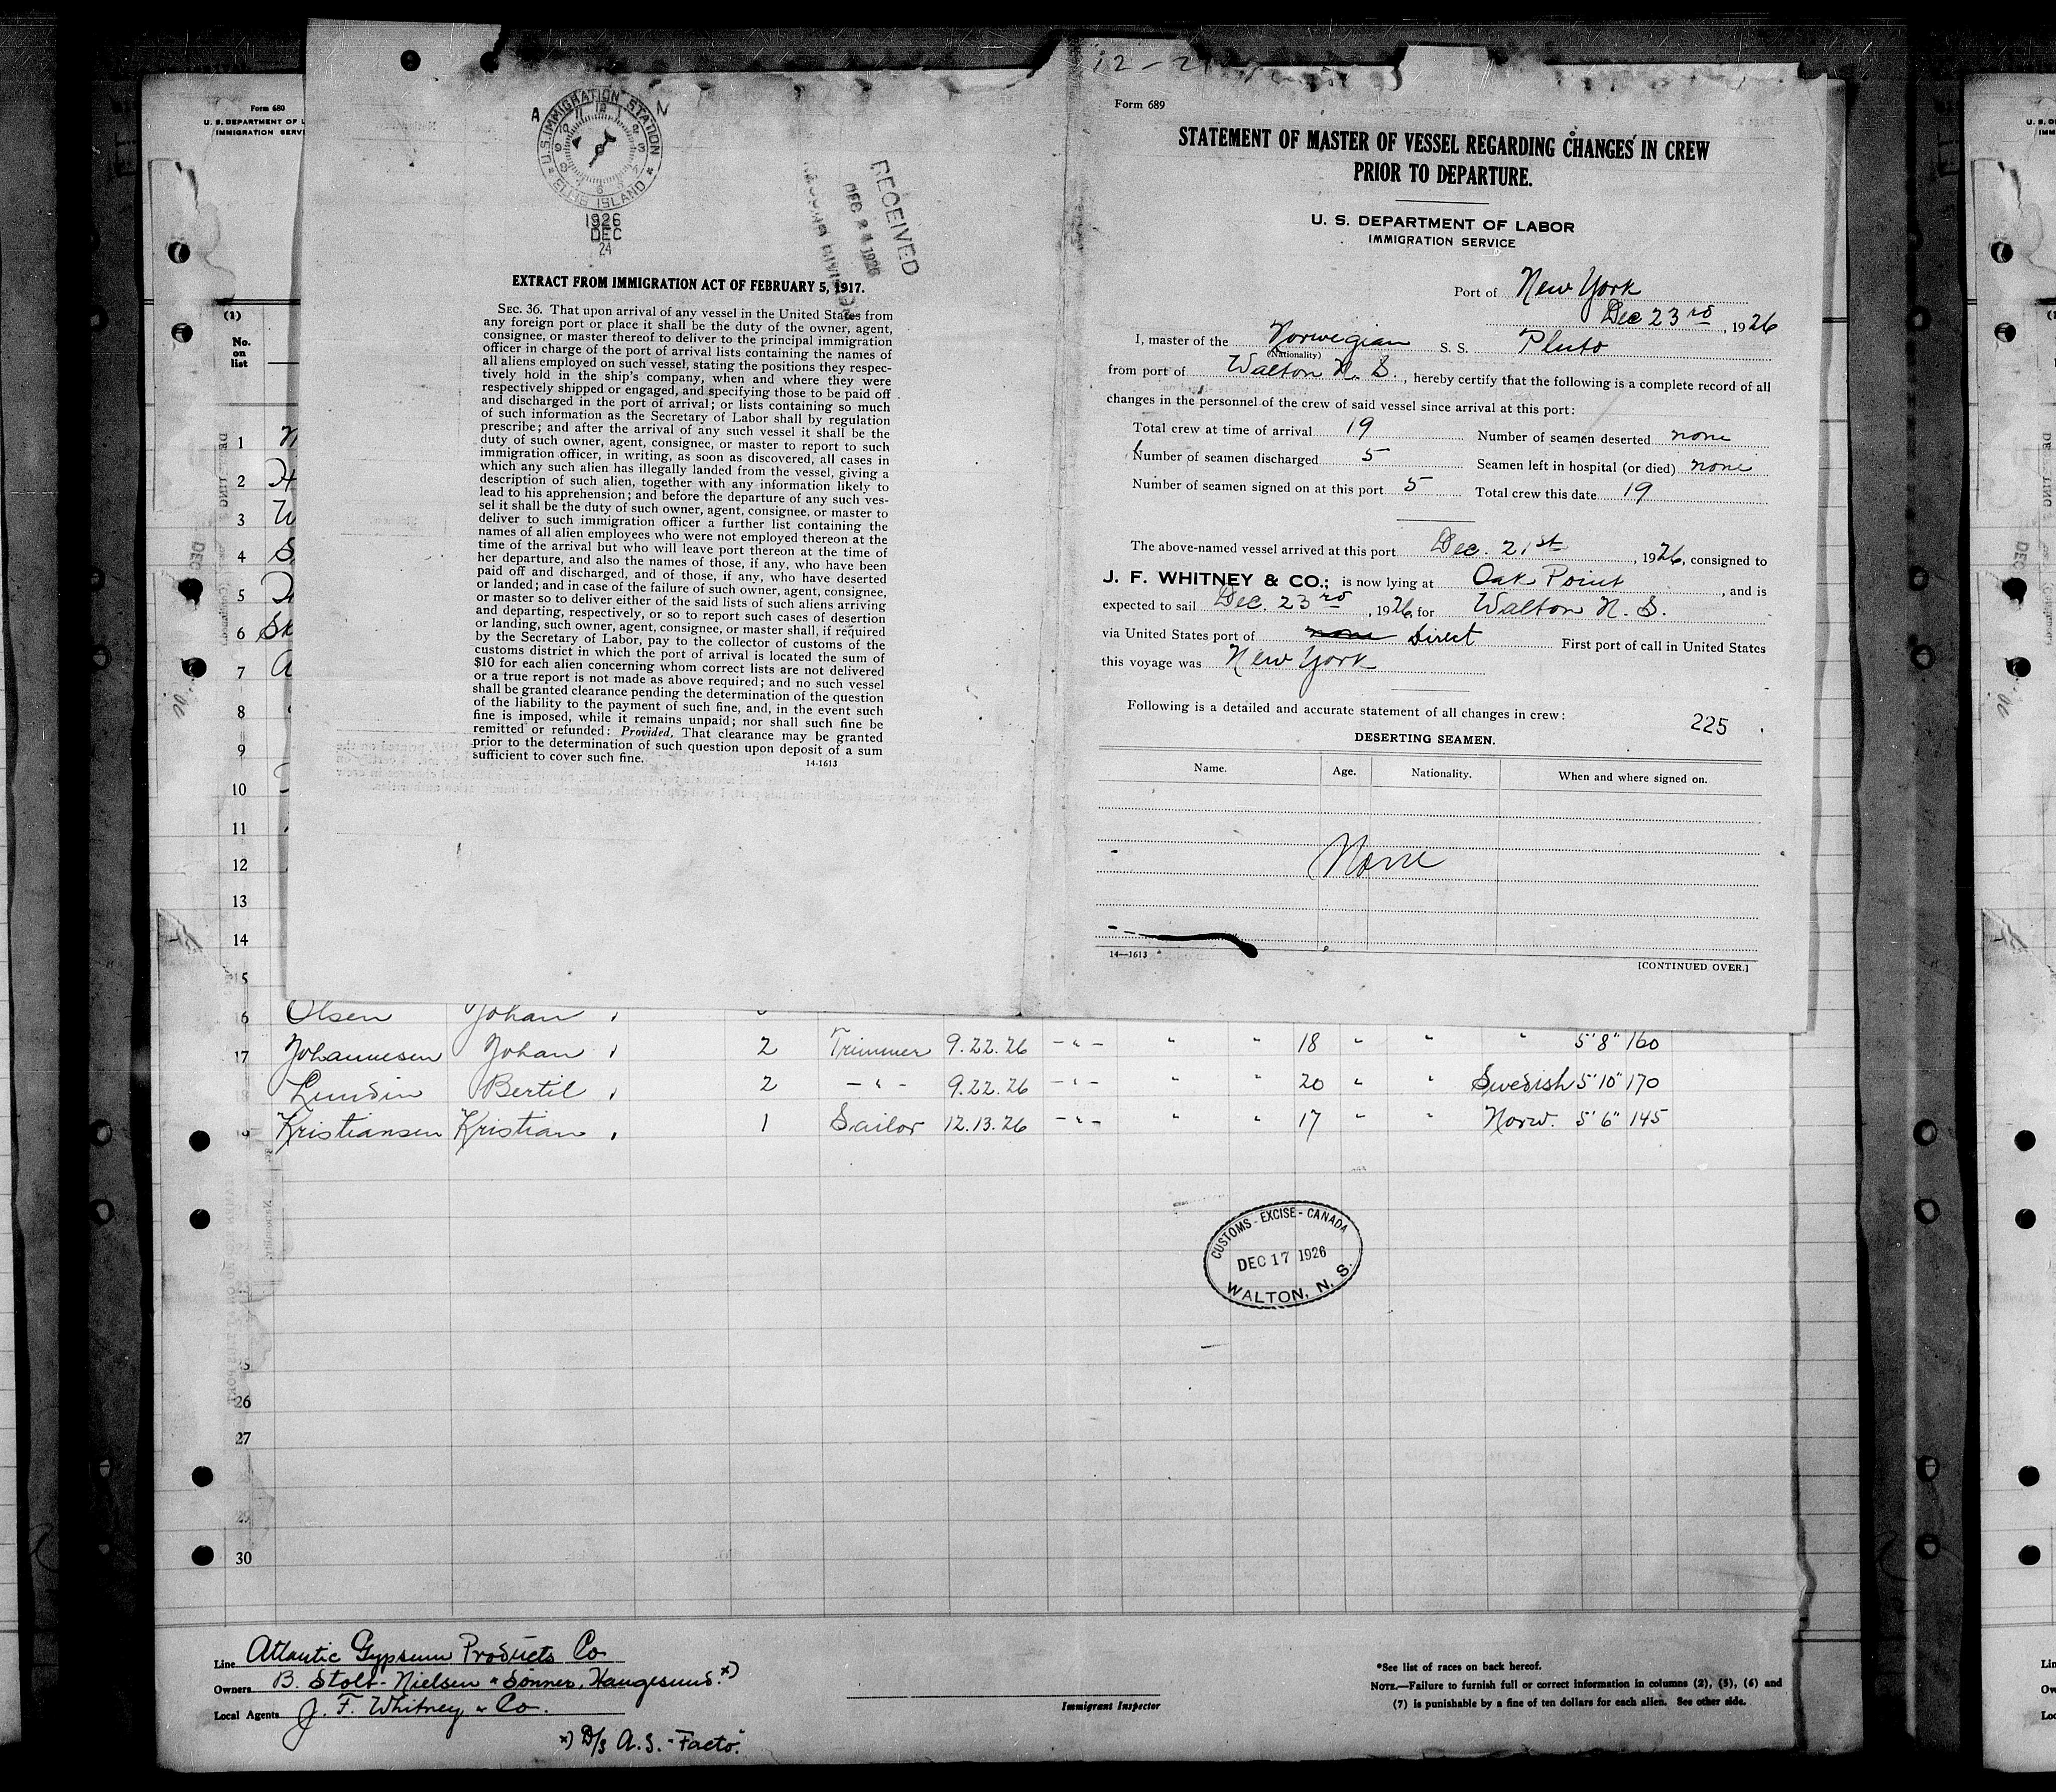 12-21
Form 680
U. S. DEPARTMENT OF L
IMMIGRATION SERV
(1)
No.
on
list
1
2
3
4
5
6
7
8
9
10
11
12
13
14
15
A N
U.S. IMMIGRATION STATION
ELLIS ISLAND
1926
DEC
24
RECEIVED
DEC 24 1926
EXTRACT FROM IMMIGRATION ACT OF FEBRUARY 5, 1917.
SEC. 36. That upon arrival of any vessel in the United States from
any foreign port or place it shall be the duty of the owner, agent,
consignee, or master thereof to deliver to the principal immigration
officer in charge of the port of arrival lists containing the names of
all aliens employed on such vessel, stating the positions they respec-
tively hold in the ship's company, when and where they were
respectively shipped or engaged, and specifying those to be paid off
and discharged in the port of arrival; or lists containing so much
of such information as the Secretary of Labor shall by regulation
prescribe; and after the arrival of any such vessel it shall be the
duty of such owner, agent, consignee, or master to report to such
immigration officer, in writing, as soon as discovered, all cases in
which any such alien has illegally landed from the vessel, giving a
description of such alien, together with any information likely to
lead to his apprehension; and before the departure of any such ves-
sel it shall be the duty of such owner, agent, consignee, or master to
deliver to such immigration officer a further list containing the
names of all alien employees who were not employed thereon at the
time of the arrival but who will leave port thereon at the time of
her departure, and also the names of those, if any, who have been
paid off and discharged, and of those, if any, who have deserted
or landed; and in case of the failure of such owner, agent, consignee,
or master so to deliver either of the said lists of such aliens arriving
and departing, respectively, or so to report such cases of desertion
or landing, such owner, agent, consignee, or master shall, if required
by the Secretary of Labor, pay to the collector of customs of the
customs district in which the port of arrival is located the sum of
$10 for each alien concerning whom correct lists are not delivered
or a true report is not made as above required; and no such vessel
shall be granted clearance pending the determination of the question
of the liability to the payment of such fine, and, in the event such
fine is imposed, while it remains unpaid; nor shall such fine be
remitted or refunded: Provided, That clearance may be granted
prior to the determination of such question upon deposit of a sum
sufficient to cover such fine. 14-1613
Form 689
STATEMENT OF MASTER OF VESSEL REGARDING CHANGES IN CREW
PRIOR TO DEPARTURE.
U. S. DEPARTMENT OF LABOR
IMMIGRATION SERVICE
Port of New York
Dec 23rd, 1926
I, master of the Norwegian S. S. Pluto
(Nationality)
from port of Walton N. S., hereby certify that the following is a complete record of all
changes in the personnel of the crew of said vessel since arrival at this port:
Total crew at time of arrival 19 Number of seamen deserted none
Number of seamen discharged 5 Seamen left in hospital (or died) none
Number of seamen signed on at this port 5 Total crew this date 19
The above-named vessel arrived at this port Dec. 21st, 1926, consigned to
J. F. WHITNEY & CO.; is now lying at Oak Point, and is
expected to sail Dec. 23rd, 1926 for Walton N. S.
via United States port of none Direct First port of call in United States
this voyage was New York
Following is a detailed and accurate statement of all changes in crew: 225
DESERTING SEAMEN.
Name. Age. Nationality. When and where signed on.
None
14—1613
[CONTINUED OVER.]
Olsen Johan
17 Johannesen Johan 2 Trimmer 9.22.26 -"- " " 18 " " " 5'8" 160
Lundin Bertil 2 -"- 9.22.26 -"- " " 20 " " Swedish 5'10" 170
Kristiansen Kristian 1 Sailor 12.13.26 -"- " " 17 " " Norw. 5'6" 145
CUSTOMS - EXCISE - CANADA
DEC 17 1926
WALTON, N. S.
26
27
30
Line Atlantic Gypsum Products Co
Owners B. Stolt-Nielsen & Sønner, Haugesund. x)
Local Agents J. F. Whitney & Co.
x) D/s A.S. "Facto."
Immigrant Inspector
*See list of races on back hereof.
NOTE.—Failure to furnish full or correct information in columns (2), (5), (6) and
(7) is punishable by a fine of ten dollars for each alien. See other side.